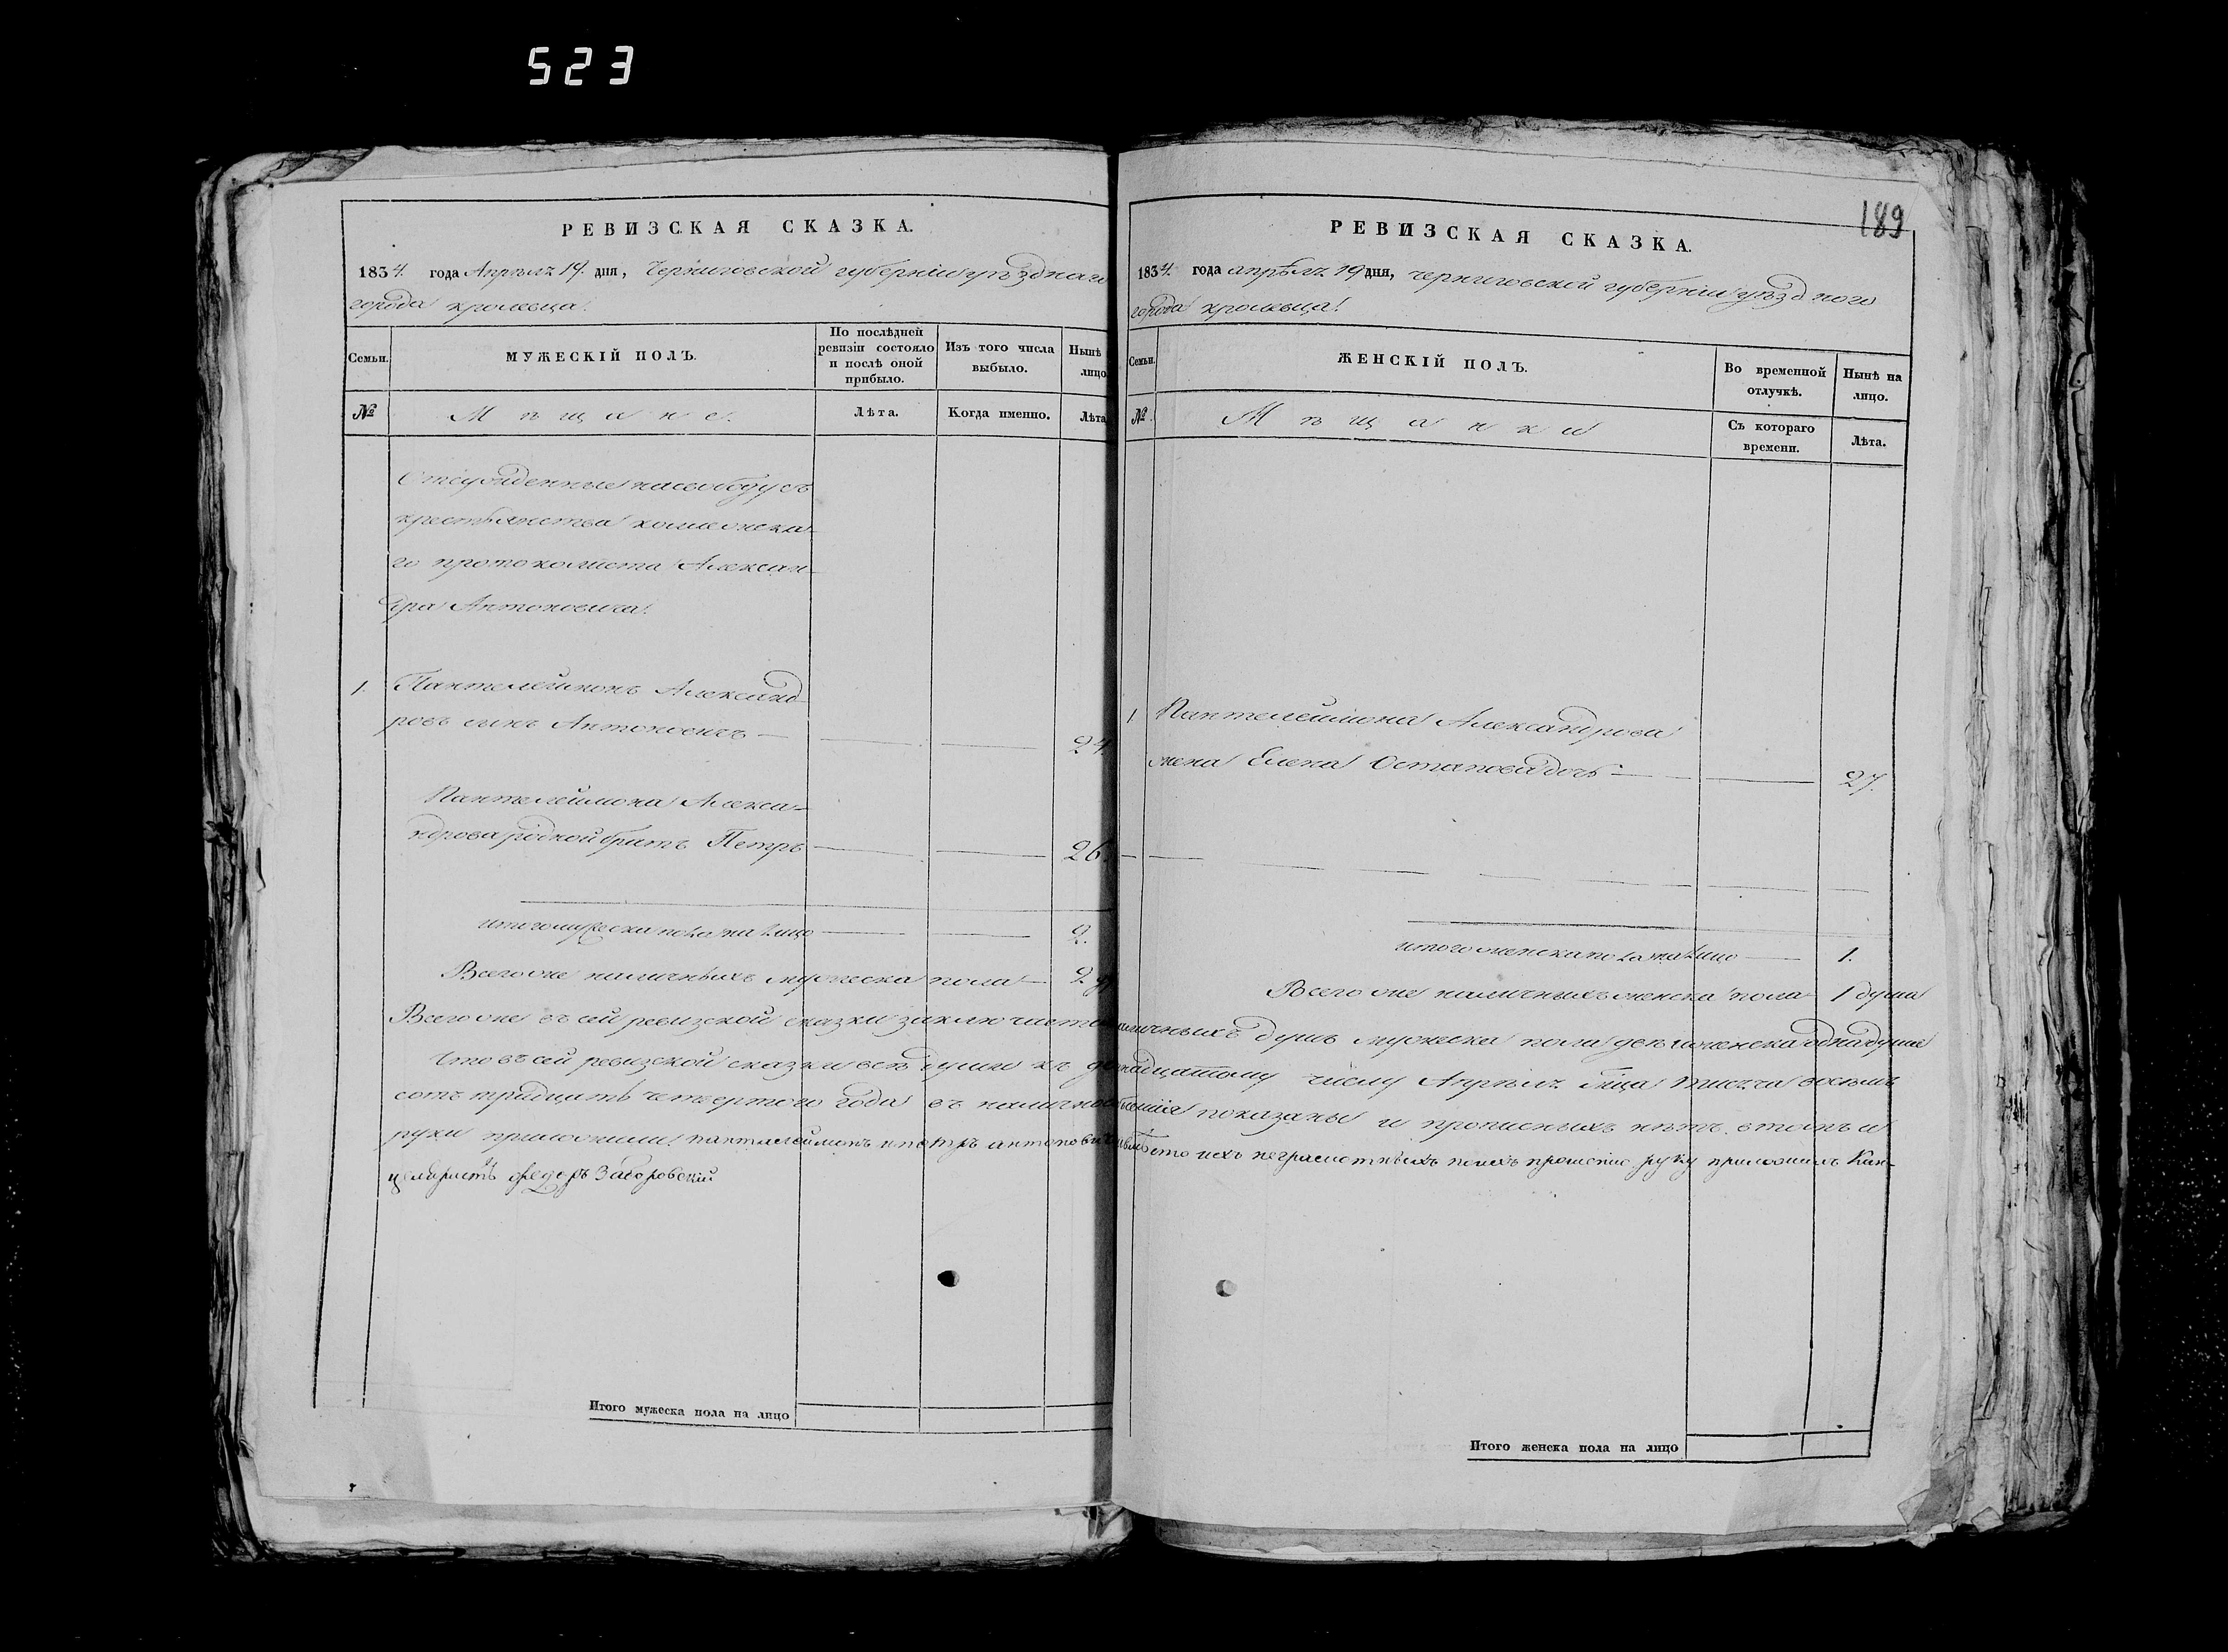 523
РЕВИЗСКАЯ СКАЗКА.
1834. года Апрѣля 19. дня, Черниговской губерніи уѣзднаго
города Кролевца.
Семьи.
МУЖЕСКІЙ ПОЛЪ.
По послѣдней ревизіи состояло и послѣ оной прибыло.
Изъ того числа выбыло.
Нынѣ лицо
№
Мѣщане.
Лѣта.
Когда именно.
Лѣта
Отсужденные на свободу съ
крестьянства колежска-
го протоколиста Алексан-
дра Антоновича.
1. Пантелеймонъ Александ-
ровъ сынъ Антоновичъ — 24.
Пантелеймона Алекса-
ндрова родной братъ Петръ 26.
итого мужеска пола на лицо 2.
Всего же наличныхъ мужеска пола — 2
189
РЕВИЗСКАЯ СКАЗКА.
1834. года апрѣля 19 дня, черниговской губерніи уѣздного
города кролевца.
Семьи.
ЖЕНСКІЙ ПОЛЪ.
Во временной отлучкѣ.
Нынѣ на лицо.
№.
Мѣщанки
Съ котораго времени.
Лѣта.
1 Пантелеймона Александрова
жена Елена Остапова дочь — 27.
итого женска пола на лицо — 1.
Всего же наличныхъ женска пола 1 душа
Всего же въ сей ревизской сказки заключается наличныхъ душъ мужеска пола двѣ и женска одна душа
Что въ сей ревизской сказки всѣ души къ числу Апрѣля тысяча восемь
сотъ тридцать четвертого года въ показаны и прописныхъ нѣтъ, въ томъ и
руки приложили. пантелеймонъ и петръ антоновичи вмѣсто ихъ неграмотныхъ по ихъ прошенію руку приложилъ Кан-
целяристъ Федоръ Заборовский
Итого мужеска пола на лицо
Итого женска пола на лицо